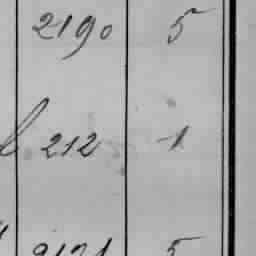 2190 5
212 1
2121 5